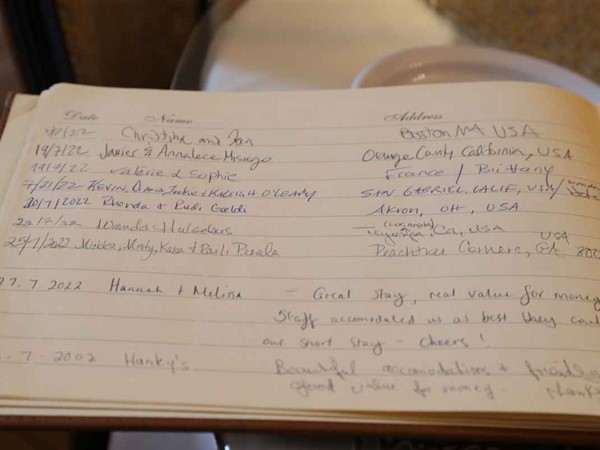 Date Name Address
7/22 Christina and Ian Boston MA USA
19/7/22 Javier & Annalece Orange County California, USA
19/7/22 Valérie & Sophie France / Brittany
7/21/22 KEVIN, & KALEIGH O'LEARY SAN GABRIEL CALIF, USA/
20/7/2022 Rhonda & Rudi Akron, OH, USA
22/7/22 Wanda Ca, USA
25/7/2022 Misty, Kara & Peachtree Corners, GA USA 300
27. 7 2022 Hannah + Melissa - Great stay, real value for money
Staff accomodated us as best they could
our short stay - Cheers!
. 7 - 2002 Hanky's. Beautiful accomodations +
good value for money.